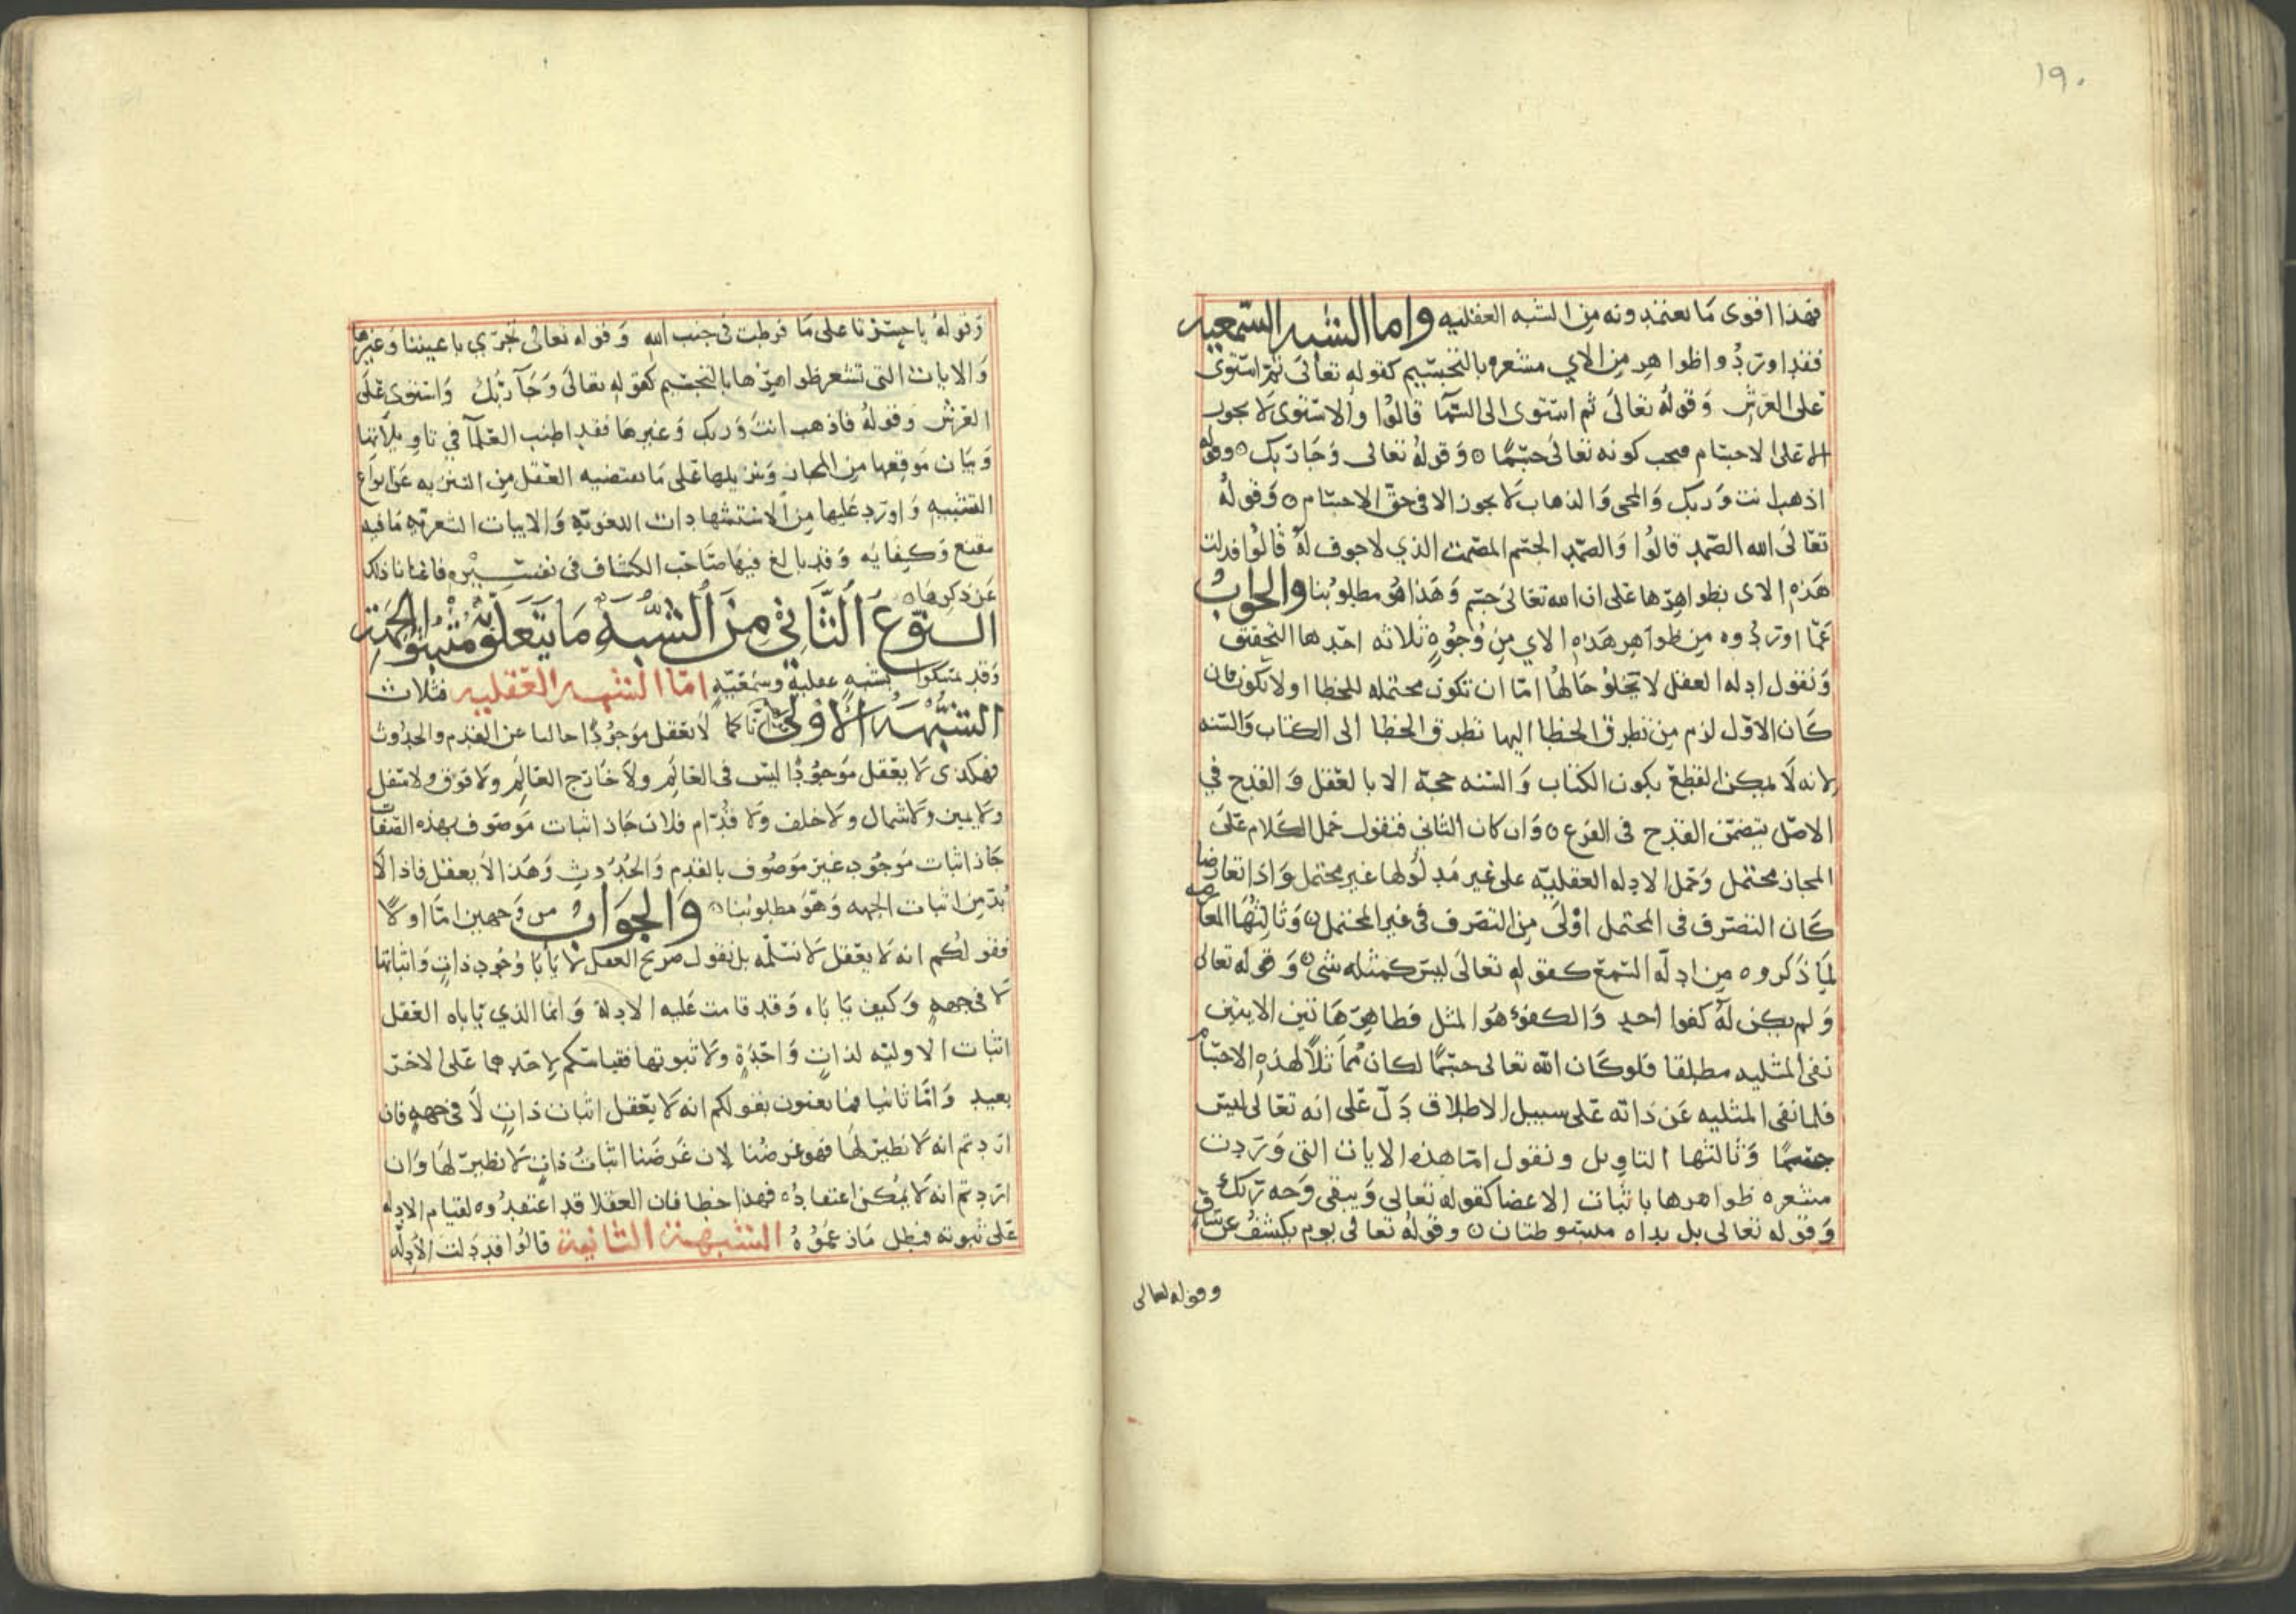 ١٩٠
فهذا اقوى ما يعتمدونه من الشبه العقليه واما الشبه السمعيه
فقد اوردوا ظواهر من الاي مشعره بالتجسيم كقوله تعالى ثم استوى
على العرش وقوله تعالى ثم استوى الى السما قالوا والاستوى لا يجوز
الا على الاجسام فيجب كونه تعالى جسما ٥ وقوله تعالى وجا ربك ٥ وقوله
اذهب انت وربك والمجى والذهاب لا يجوز الا في حق الاجسام ٥ وقوله
تعالى الله الصمد قالوا والصمد الجسم المصمت الذي لا جوف له قالوا فدلت
هذه الاى بظواهرها على ان الله تعالى جسم وهذا هو مطلوبنا والجواب
عما اوردوه من ظواهر هذه الاي من وجوه ثلاثه احدها التحقيق
ونقول ادله العقل لا تخلو حالها اما ان تكون محتمله للخطا او لا تكون فان
كان الاول لزم من تطرق الخطا اليها تطرق الخطا الى الكتاب والسنه
لانه لا يمكن القطع بكون الكتاب والسنه حجة الا بالعقل والقدح في
الاصل يتضمن القدح فى الفرع ٥ وان كان الثاني فنقول حمل الكلام على
المجاز محتمل وحمل الادله العقليه على غير مدلولها غير محتمل واذا تعارضا
كان التصرف فى المحتمل اولى من التصرف فى غير المحتمل ٥ وثانيها المعارضه
لما ذكروه من ادلة السمع كقوله تعالى ليس كمثله شى ٥ وقوله تعالى
ولم يكن له كفوا احد والكفؤ هو المثل فظاهر هاتين الايتين
نفى المثليه مطلقا فلو كان الله تعالى جسما لكان مماثلا لهذه الاجسام
فلما نفى المثليه عن ذاته على سبيل الاطلاق دل على انه تعالى ليس
جسما وثالثها التاويل ونقول اما هذه الايات التى وردت
مشعره ظواهرها باثبات الاعضا كقوله تعالى ويبقى وجه ربك
وقوله تعالى بل يداه مبسوطتان ٥ وقوله تعالى يوم يكشف عن ساق
وقوله تعالى
وقوله يا حسرتا على ما فرطت في جنب الله وقوله تعالى تجري باعيننا وغيرها
والايات التى تشعر ظواهرها بالتجسيم كقوله تعالى وجآ ربك واستوى على
العرش وقوله فاذهب انت وربك وغيرها فقد اطنب العلمآ في تاويلاتها
وبيان موقعها من المجاز وتنزيلها على ما يقتضيه العقل من التنزيه عن انواع
التشبيه واورد عليها من الاستشهادات اللغوية والابيات الشعرية ما فيه
مقنع وكفايه وقد بالغ فيها صاحب الكشاف فى تفسيره فاغنانا ذلك
عن ذكرها ٥
النوع الثاني من الشبه ما يتعلق به مثبتوا الجهة
وقد تمسكوا بشبه عقلية وسمعية اما الشبه العقليه فثلاث
الشبهه الاولى انا كما لا نعقل موجودا خاليا عن القدم والحدوث
فهكذى لا يعقل موجودا ليس فى العالم ولا خارج العالم ولا فوق ولا سفل
ولا يمين ولا شمال ولا خلف ولا قدام فلان جاز اثبات موصوف بهذه الصفات
جاز اثبات موجود غير موصوف بالقدم والحدوث وهذا لا يعقل فاذا لا
بد من اثبات الجهه وهو مطلوبنا ٥ والجواب من وجهين اما اولا
فقولكم انه لا يعقل لا نسلمه بل نقول صريح العقل لا يابا وجود ذات واثباتها
لا فى جهه وكيف ياباه وقد قامت عليه الادلة وانما الذي ياباه العقل
اثبات الاوليه لذات واحدة ولا ثبوتها فقياسكم لاحدهما على الاخر
بعيد واما ثانيا فما تعنون بقولكم انه لا يعقل اثبات ذات لا فى جهه فان
اردتم انه لا نظير لها فهو غرضنا لان غرضنا اثبات ذات لا نظير لها وان
اردتم انه لا يمكن اعتقاده فهذا خطا فان العقلا قد اعتقدوه لقيام الادله
على ثبوته فبطل ما زعموه الشبهة الثانية قالوا قد دلت الادلة